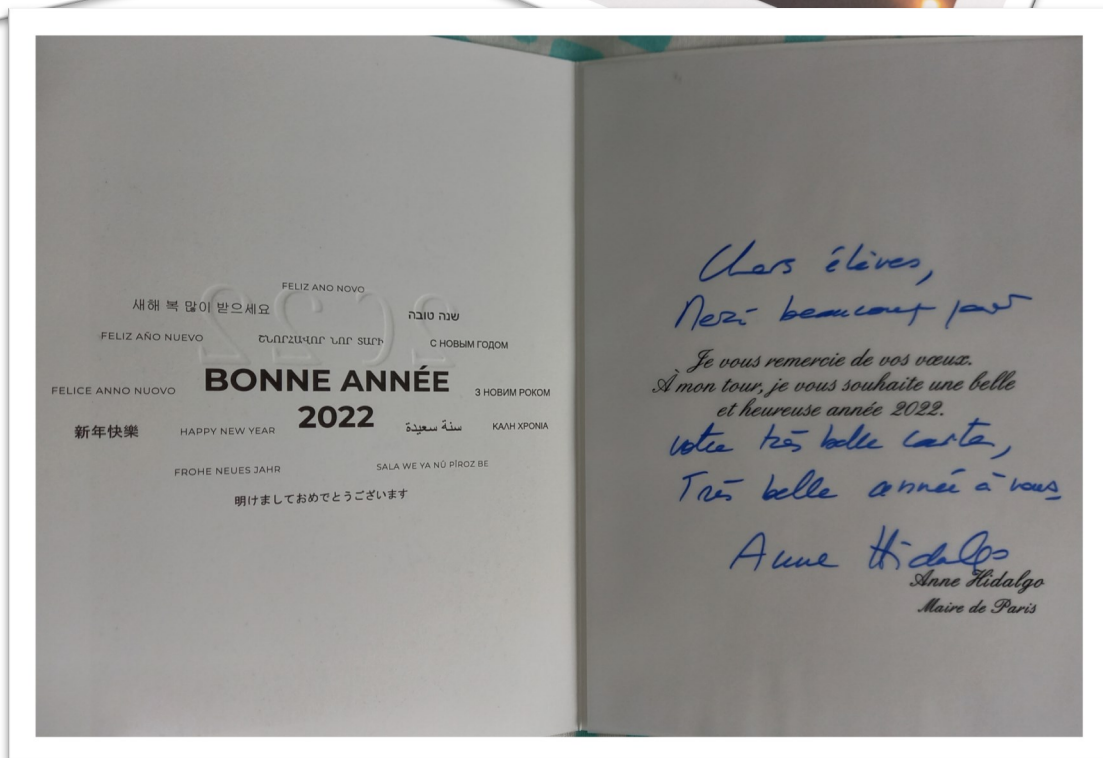 FELIZ ANO NOVO
새해 복 많이 받으세요
שנה טובה
FELIZ AÑO NUEVO
ՇՆՈՐՀԱՎՈՐ ՆՈՐ ՏԱՐԻ
С НОВЫМ ГОДОМ
BONNE ANNÉE
2022
FELICE ANNO NUOVO
З НОВИМ РОКОМ
新年快樂
HAPPY NEW YEAR
سنة سعيدة
ΚΑΛΗ ΧΡΟΝΙΑ
FROHE NEUES JAHR
SALA WE YA NÛ PÎROZ BE
明けましておめでとうございます
Chers élèves,
Merci beaucoup pour
Je vous remercie de vos vœux.
À mon tour, je vous souhaite une belle
et heureuse année 2022.
votre très belle carte,
Très belle année à vous
Anne Hidalgo
Anne Hidalgo
Maire de Paris